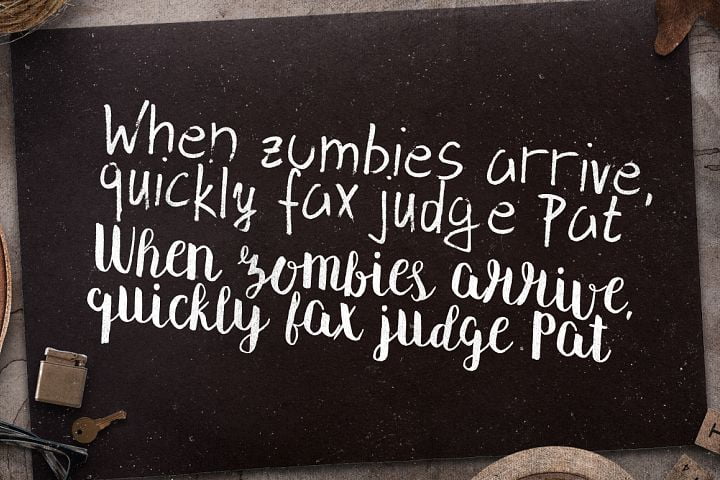 When zumbies arrive,
quickly fax judge Pat
When zombies arrive,
quickly fax judge Pat